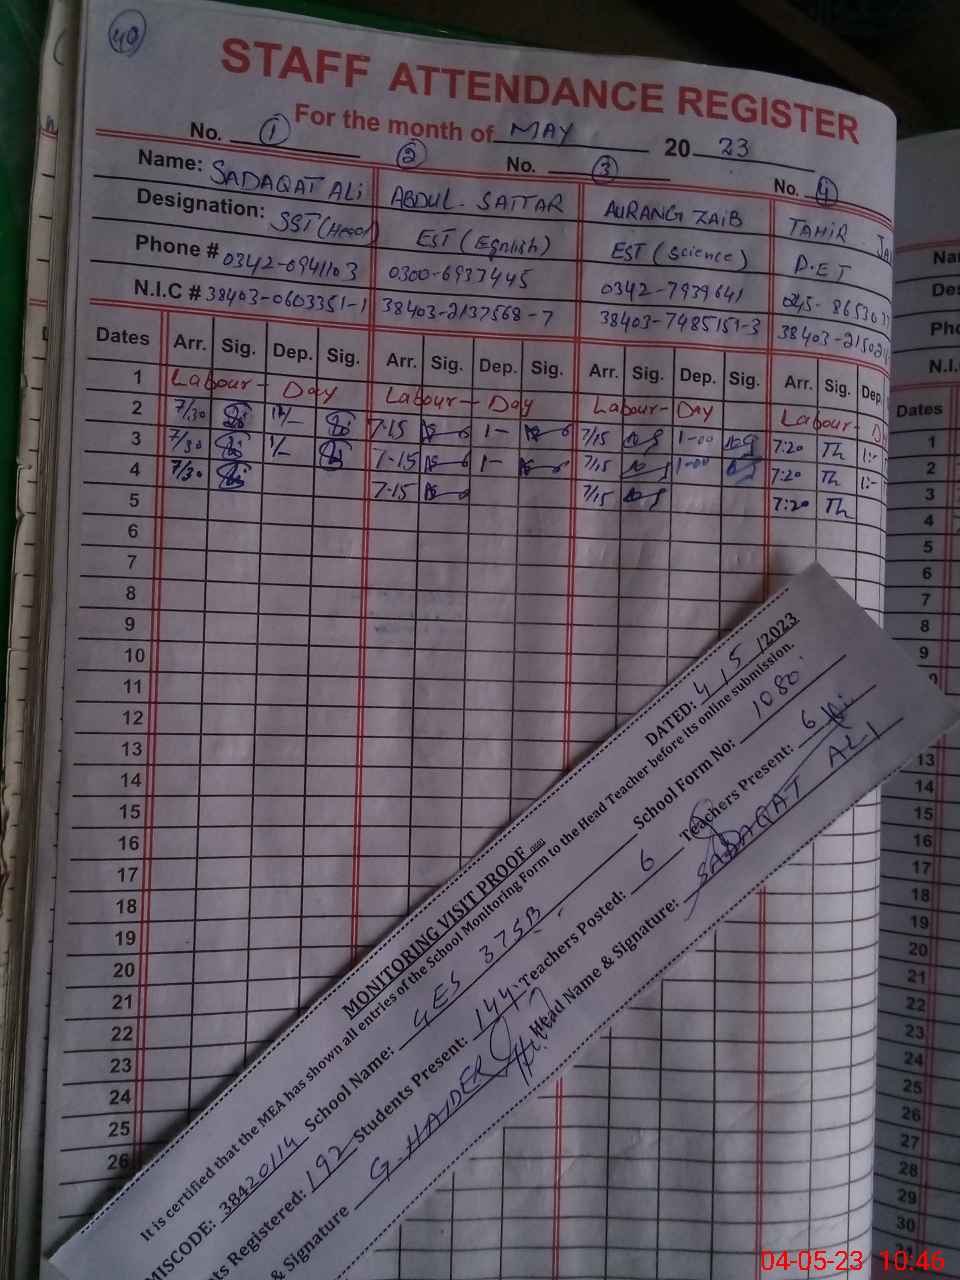 40
STAFF ATTENDANCE REGISTER
For the month of MAY 20 23
No. 1 2 No. 3 No. 4
Name: SADAQAT ALi ABDUL. SATTAR AURANGZAIB TAHIR
Designation: SST (Head) EST (Egnlish) EST (Science) D.ET
Phone # 0342-6941103 0300-6937445 0342-7939641
N.I.C # 38403-0603351-1 38403-2137568-7 38403-7485151-3
Dates Arr. Sig. Dep. Sig. Arr. Sig. Dep. Sig. Arr. Sig. Dep. Sig. Arr. Sig. Dep.
1 Labour- Day Labour- Day Labour- Day Labour-
2 7/30 7-15 1- 7/15 1-00 7:20 Th 1:-
3 7/30 1/- 7-15 1- 7/15 1-00 7:20 Th 1:-
4 7/30 7-15 7/15 7:20 Th
5
6
7
8
9
10
11
12
13
14
15
16
17
18
19
20
21
22
23
24
25
26
MONITORING VISIT PROOF DATED: 4/5/2023
It is certified that the MEA has shown all entries of the School Monitoring Form to the Head Teacher before its online submission.
MISCODE: 38420114 School Name: GES 37SB School Form No: 1080
Registered: 192 Students Present: 144 Teachers Posted: 6 Teachers Present: 6
& Signature G. HAIDER Head Name & Signature: SADAQAT ALI
Dates
1
2
3
4
5
6
7
8
9
13
14
15
16
17
18
19
20
21
22
23
24
25
26
27
28
29
30
04-05-23 10:46